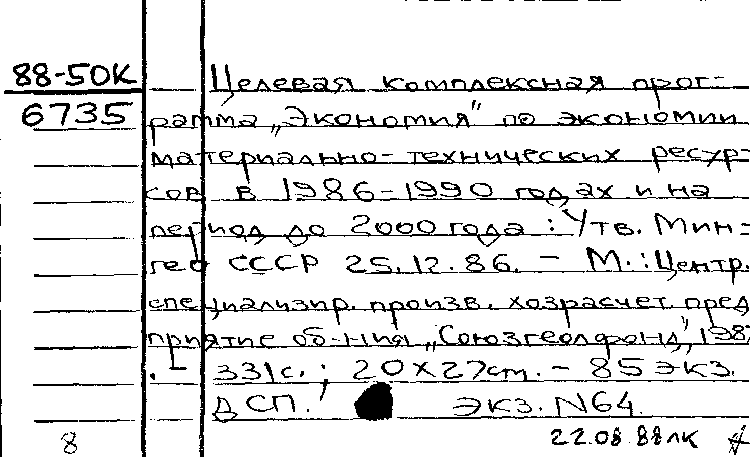 88-50К
6735
Целевая комплексная прог-
рамма „Экономия" по экономии
материально-технических ресур-
сов в 1986-1990 годах и на
период до 2000 года : Утв. Мин-
гео СССР 25.12.86. - М.: Центр.
специализир. произв. хозрасчет. пред
приятие об-ния „Союзгеолфонд", 198
. - 331с. ; 20X27cm. - 85 экз.
ДСП.
экз. N64.
8
22.08.88